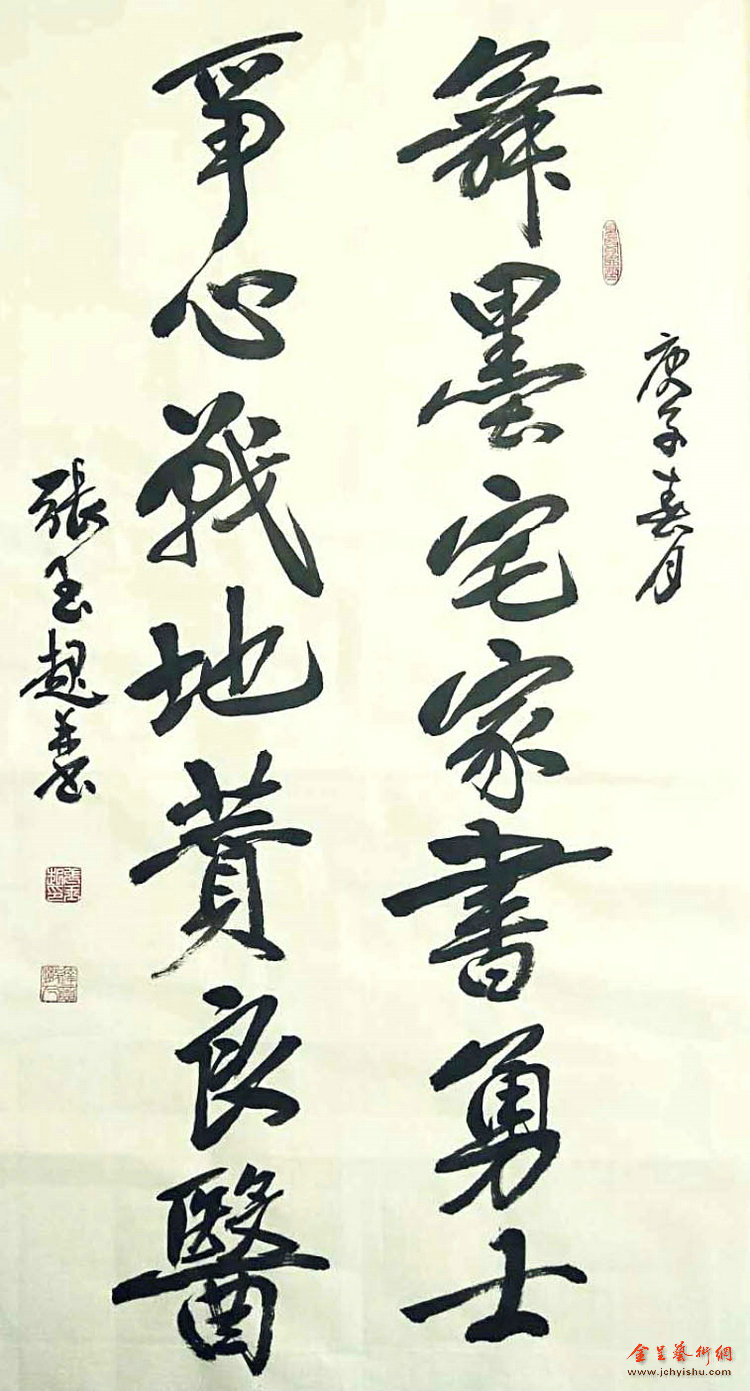 庚子春月
舞墨宅家書勇士
心戰地贊良醫
張玉超并書
金呈藝術網
www.jchyishu.com